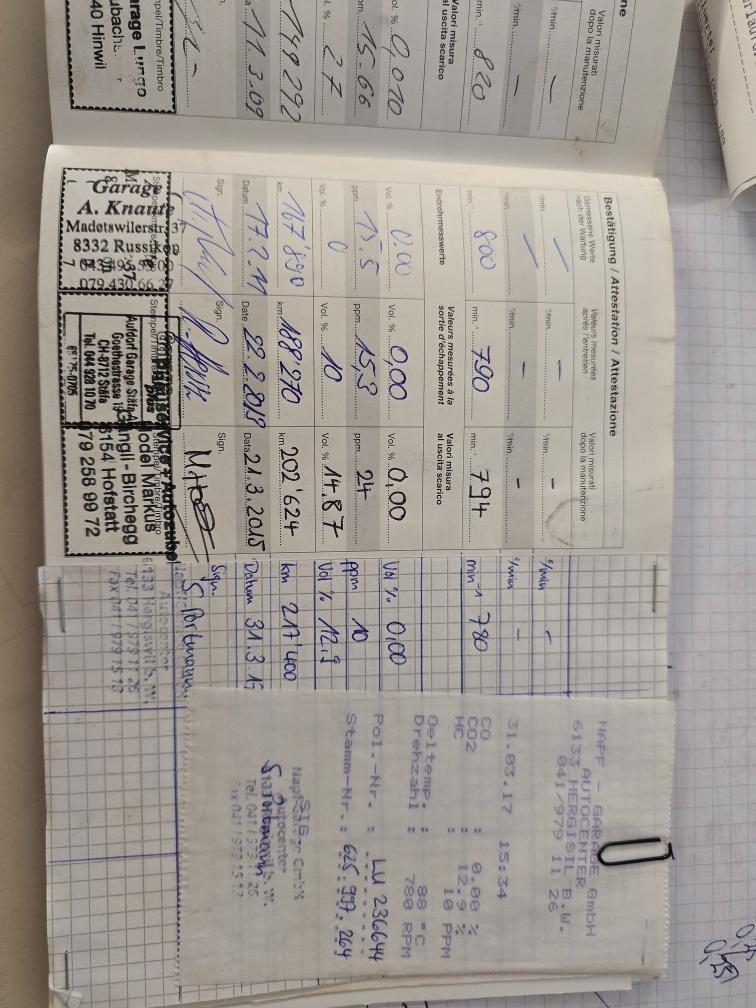 Valori misurati
dopo la manutenzione
°/min. –
°/min. –
min.⁻¹ 820
Valori misura
al uscita scarico
Vol. % 0,010
ppm 15-66
Vol. % 2.7
km 149'292
Data 11.3.09
Sign.
Stempel/Timbre/Timbro
Garage Lungo
8340 Hinwil
Bestätigung / Attestation / Attestazione
Gemessene Werte
nach der Wartung
°/min. –
°/min. –
min.⁻¹ 800
Endrohrmesswerte
Vol. % 0.00
ppm 15.5
Vol. % 0
km 167'890
Datum 17.2.11
Sign.
Garage
A. Knaus
Madetswilerstr. 37
8332 Russikon
079 430 66 27
Valeurs mesurées
après l'entretien
°/min. –
°/min. –
min.⁻¹ 790
Valeurs mesurées à la
sortie d'échappement
Vol. % 0,00
ppm 15,3
Vol. % 10
km 188'270
Date 22.2.2013
Sign.
Aufdorf Garage Stäfa
Goethestrasse 1
CH-8712 Stäfa
Tel. 044 928 10 70
Valori misurati
dopo la manutenzione
°/min. –
°/min. –
min.⁻¹ 794
Valori misura
al uscita scarico
Vol. % 0,00
ppm 24
Vol. % 14.87
km 202'624
Data 21.3.2015
Sign.
Autozubehör
Rodel Markus
Gängli - Birchegg
6154 Hofstatt
079 258 99 72
°/min –
°/min –
min⁻¹ 780
Vol % 0,00
ppm 10
Vol % 12.9
km 217'400
Datum 31.3.1
Sign. S. Portmann
Autocenter
6133 Hergiswil b. W.
Tel. 041 / 979 11 26
Fax 041 / 979 15 13
NAPF - GARAGE GmbH
AUTOCENTER
6133 HERGISIL B.W.
041/979 11 26
31.03.17 15:34
CO : 0.00 %
CO2 : 12.9 %
HC : 10 PPM
Oeltemp. : 88 °C
Drehzahl : 780 RPM
Pol.-Nr. : LU 236644
Stamm-Nr. : 625.997.264
Autocenter
Tel. 041 / 979 11 26
Fax 041 / 979 15 13